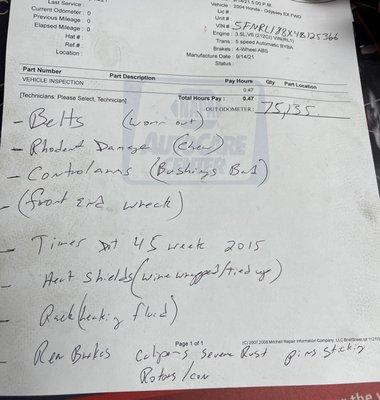 Last Service :
Current Odometer : 0
Previous Mileage : 0
Elapsed Mileage : 0
Hat # :
Ref.# :
Location :
5:00 P.M.
Vehicle : 2004 Honda - Odyssey EX FWD
Lic # :
Unit # :
VIN # : 5FNRL188X4B125366
Engine : 3.5L,V6 (212CI) VIN(RL1)
Trans : 5 speed Automatic BYBA
Brakes : 4-Wheel ABS
Manufacture Date : 9/14/21
Status :
Part Number Part Description Pay Hours Qty Part Location
VEHICLE INSPECTION 0.47
[Technicians: Please Select, Technician] Total Hours Pay : 0.47
OUT ODOMETER : 75,135
AUTO CARE
CENTER
- Belts (worn out)
- Rhodent Damage (Chew)
- Control arms (Bushings Bad)
- (front end wreck)
- Tires 45 week 2015
- Heat shields (wire wrapped/tied up)
- Rack (leaking fluid)
Page 1 of 1 (C) 2007,2008 Mitchell Repair Information Company, LLC
- Rear Brakes calipers severe Rust pins sticking
Rotors /
the